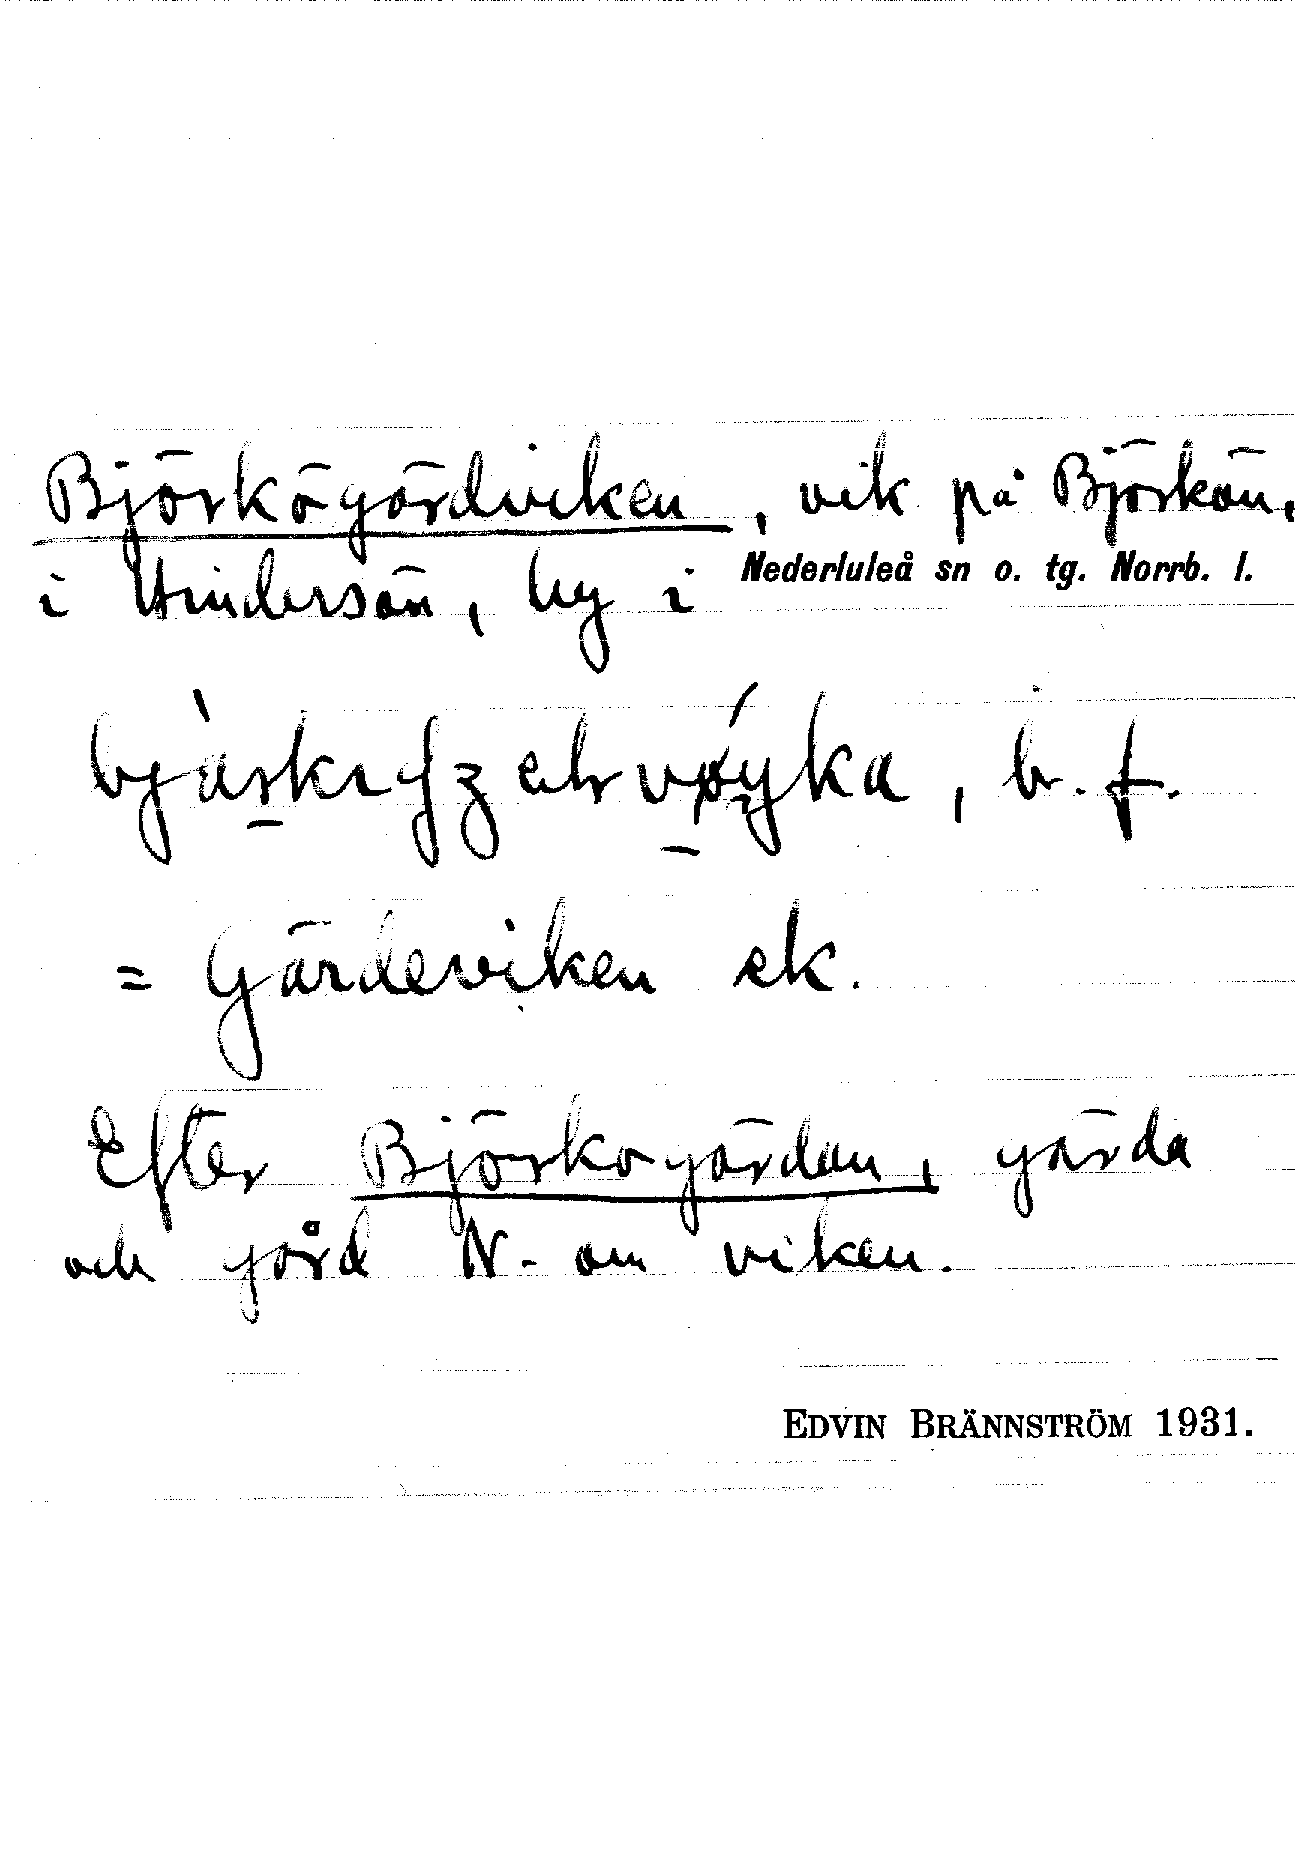 Björkögärdviken, vik på Björkön,
i Hindersön, by i Nederluleå sn o. tg. Norrb. l.
b. f.
= Gärdeviken ek.
Efter Björkogärdan, gärda
och gård N. om viken.
EDVIN BRÄNNSTRÖM 1931.